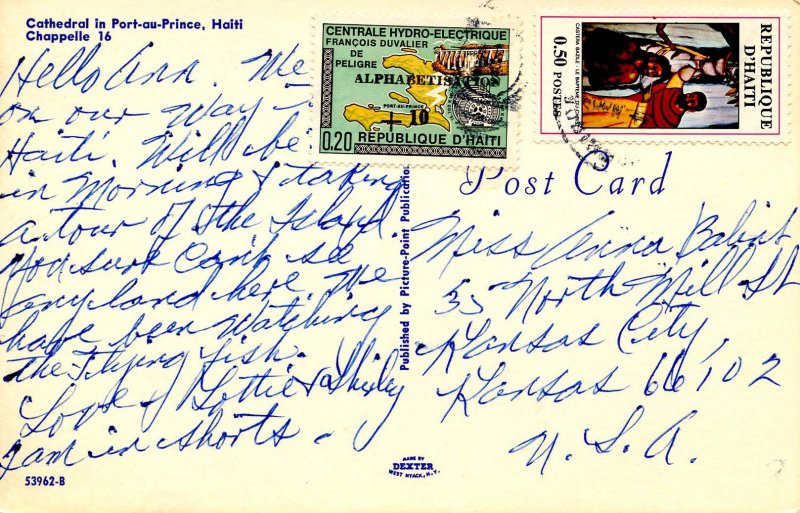 Cathedral in Port-au-Prince, Haiti
Chappelle 16
Hello Ann. We
on our way
Haiti. Will be
in Morning & taking
a tour of the Island.
You sure can't see
any land here. We
have been watching
the Flying fish.
Love Lottie & Shirley
I am in shorts.
53962-B
CENTRALE HYDRO-ELECTRIQUE
FRANÇOIS DUVALIER
DE
PELIGRE
ALPHABETISATION
PORT-AU-PRINCE
+ 10
0.20 REPUBLIQUE D'HAITI
REPUBLIQUE
D'HAITI
0.50 POSTES
Post Card
Published by Picture-Point Publications
Miss Anna
35 North Mill St
Kansas City,
Kansas 66102
U.S.A.
MADE BY
DEXTER
WEST NYACK, N.Y.